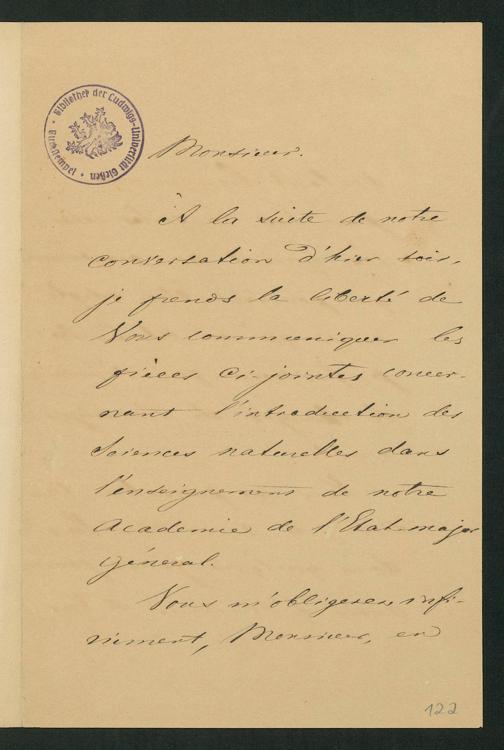 Bibliothek der Ludwigs-Universität Gießen
Monsieur.
À la suite de notre
conversation d'hier soir,
je prends la liberté de
Vous communiquer les
pièces ci-jointes concer-
nant l'introduction des
sciences naturelles dans
l'enseignement de notre
Academie de l'Etat-major
général.
Vous m'obligerez infi-
niment, Monsieur, en
122